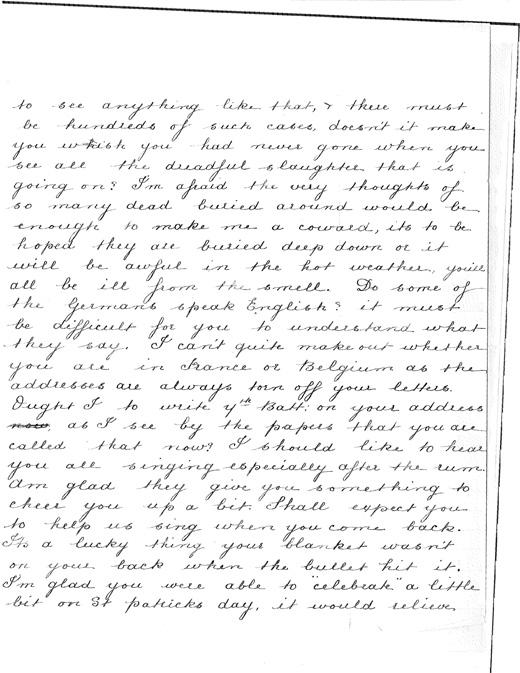 to see anything like that, & there must
be hundreds of such cases, doesn't it make
you wish you had never gone when you
see all the dreadful slaughter that is
going on? I'm afraid the very thoughts of
so many dead buried around would be
enough to make me a coward, its to be
hoped they are buried deep down or it
will be awful in the hot weather, you'll
all be ill from the smell. Do some of
the Germans speak English? it must
be difficult for you to understand what
they say. I can't quite make out whether
you are in France or Belgium as the
addresses are always torn off your letters.
Ought I to write 4th Batt: on your address
now, as I see by the papers that you are
called that now? I should like to hear
you all singing especially after the rum.
Am glad they give you something to
cheer you up a bit. Shall expect you
to help us sing when you come back.
Its a lucky thing your blanket wasn't
on your back when the bullet hit it.
I'm glad you were able to "celebrate" a little
bit on St Patricks day, it would relieve